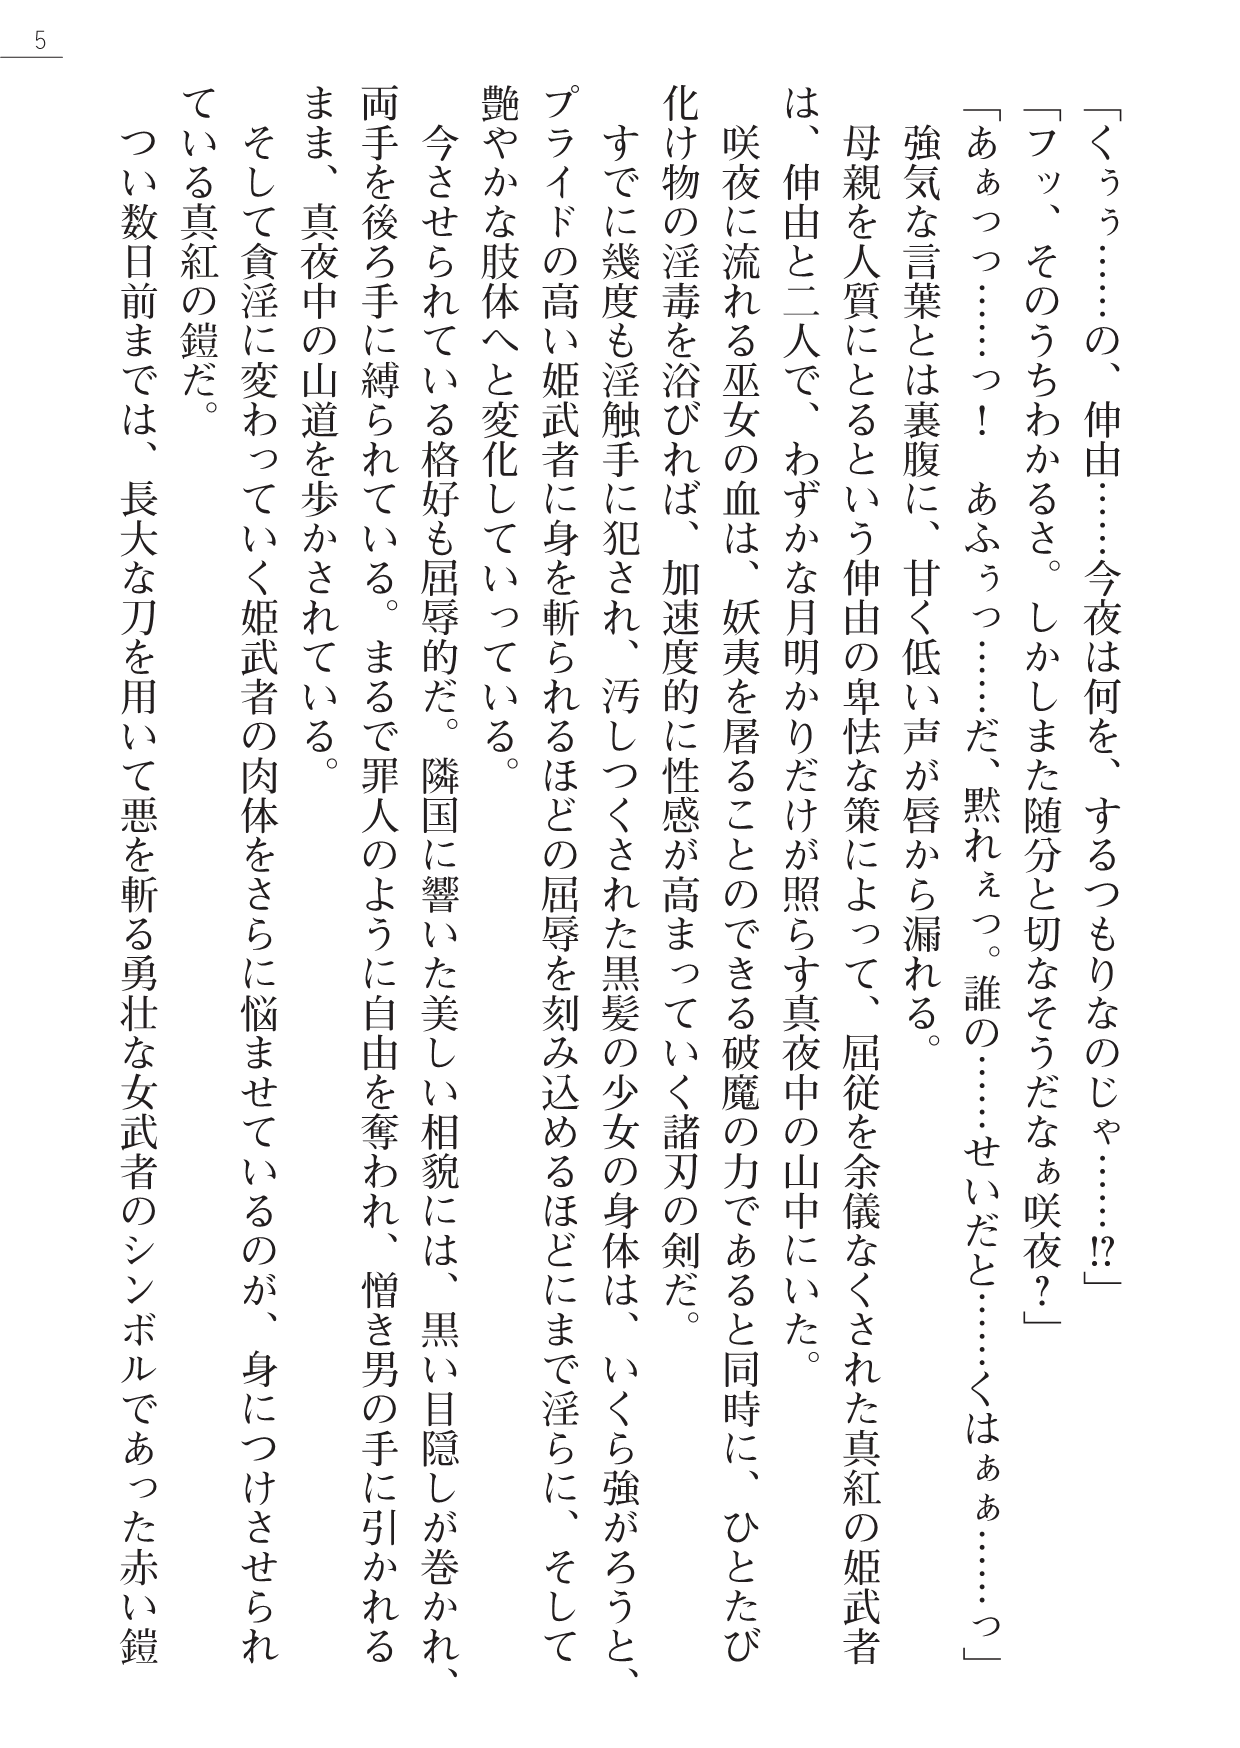 5
「くぅぅ……の、伸由……今夜は何を、するつもりなのじゃ……!?」
「フッ、そのうちわかるさ。しかしまた随分と切なそうだなぁ咲夜?」
「あぁっっ……っ! あふぅっ……だ、黙れぇっ。誰の……せいだと……くはぁぁ……っ」
強気な言葉とは裏腹に、甘く低い声が唇から漏れる。
母親を人質にとるという伸由の卑怯な策によって、屈従を余儀なくされた真紅の姫武者
は、伸由と二人で、わずかな月明かりだけが照らす真夜中の山中にいた。
咲夜に流れる巫女の血は、妖夷を屠ることのできる破魔の力であると同時に、ひとたび
化け物の淫毒を浴びれば、加速度的に性感が高まっていく諸刃の剣だ。
すでに幾度も淫触手に犯され、汚しつくされた黒髪の少女の身体は、いくら強がろうと、
プライドの高い姫武者に身を斬られるほどの屈辱を刻み込めるほどにまで淫らに、そして
艶やかな肢体へと変化していっている。
今させられている格好も屈辱的だ。隣国に響いた美しい相貌には、黒い目隠しが巻かれ、
両手を後ろ手に縛られている。まるで罪人のように自由を奪われ、憎き男の手に引かれる
まま、真夜中の山道を歩かされている。
そして貪淫に変わっていく姫武者の肉体をさらに悩ませているのが、身につけさせられ
ている真紅の鎧だ。
つい数日前までは、長大な刀を用いて悪を斬る勇壮な女武者のシンボルであった赤い鎧